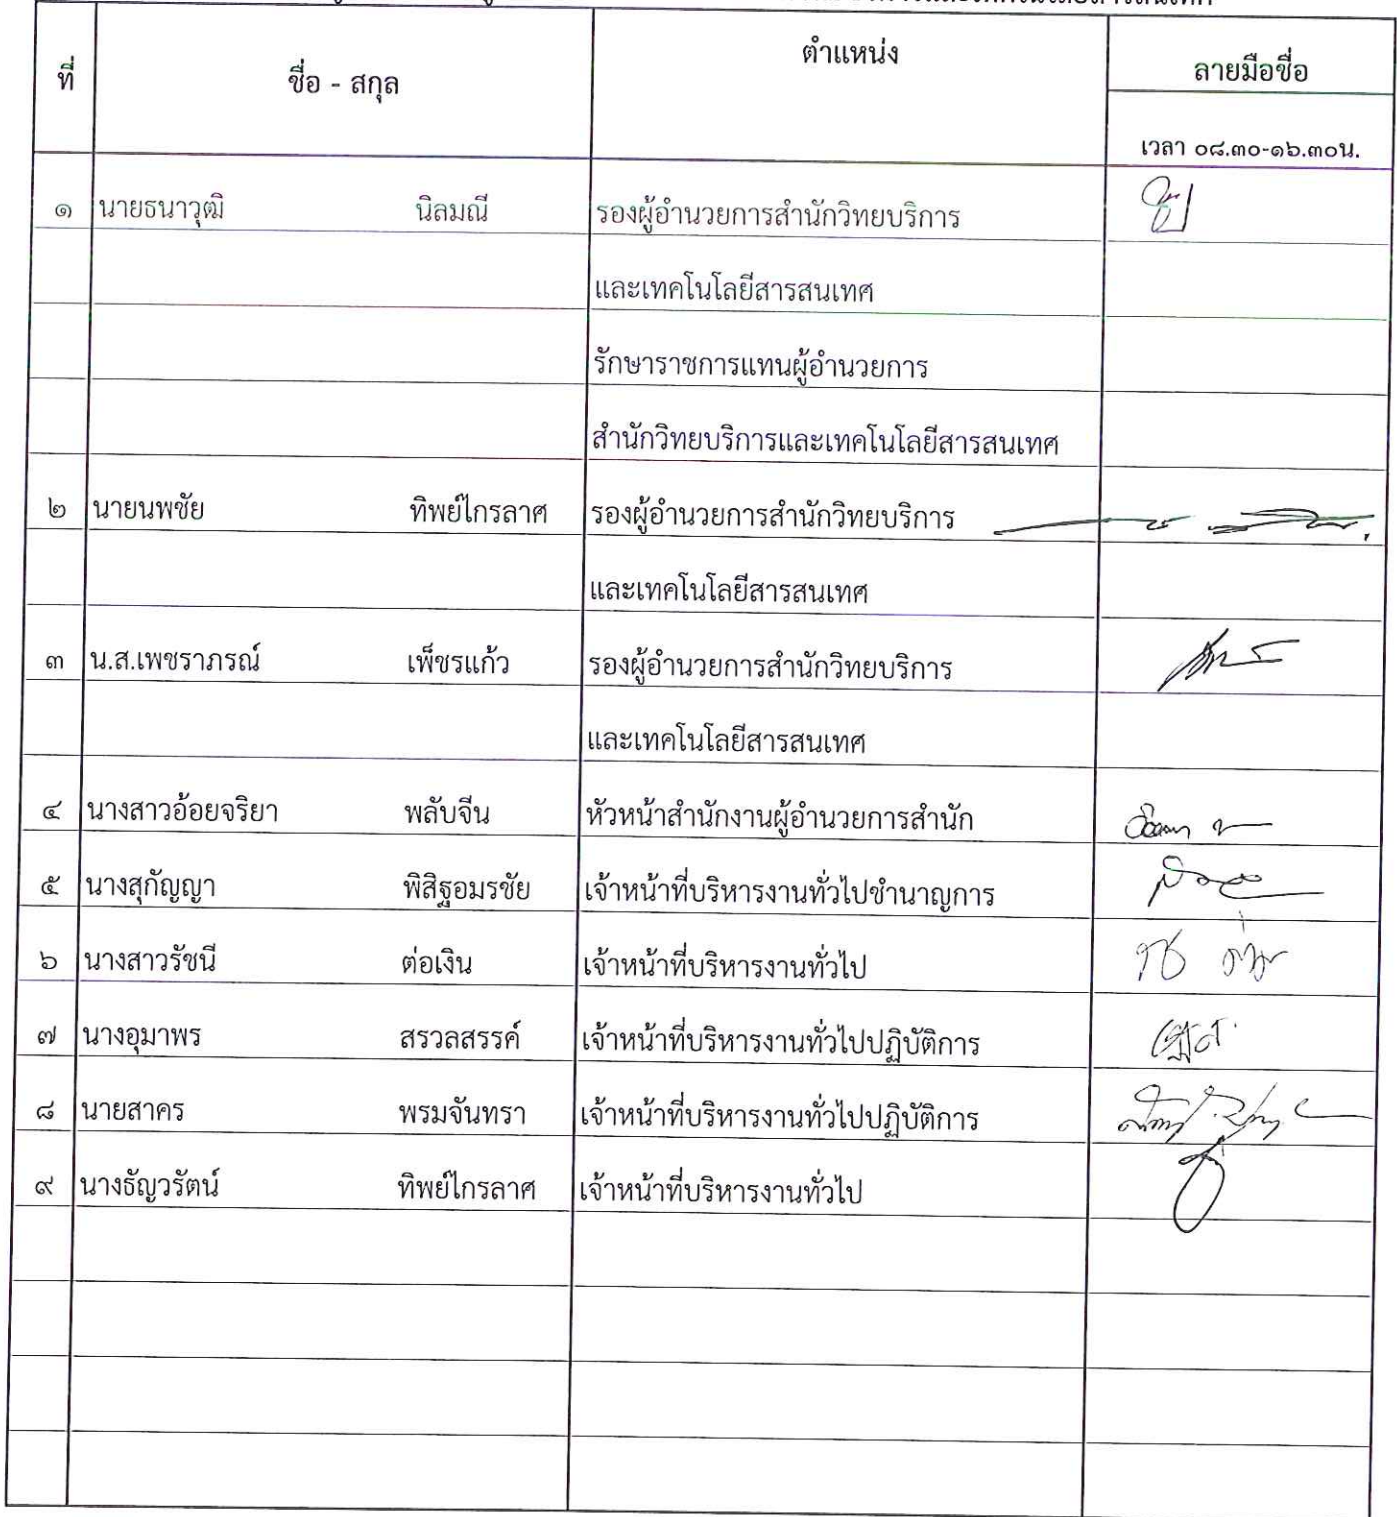 ที่ ชื่อ - สกุล ตำแหน่ง ลายมือชื่อ
เวลา ๐๘.๓๐-๑๖.๓๐น.
๑ นายธนาวุฒิ นิลมณี รองผู้อำนวยการสำนักวิทยบริการ
และเทคโนโลยีสารสนเทศ
รักษาราชการแทนผู้อำนวยการ
สำนักวิทยบริการและเทคโนโลยีสารสนเทศ
๒ นายนพชัย ทิพย์ไกรลาศ รองผู้อำนวยการสำนักวิทยบริการ
และเทคโนโลยีสารสนเทศ
๓ น.ส.เพชราภรณ์ เพ็ชรแก้ว รองผู้อำนวยการสำนักวิทยบริการ
และเทคโนโลยีสารสนเทศ
๔ นางสาวอ้อยจริยา พลับจีน หัวหน้าสำนักงานผู้อำนวยการสำนัก
๕ นางสุกัญญา พิสิฐอมรชัย เจ้าหน้าที่บริหารงานทั่วไปชำนาญการ
๖ นางสาวรัชนี ต่อเงิน เจ้าหน้าที่บริหารงานทั่วไป
๗ นางอุมาพร สรวลสรรค์ เจ้าหน้าที่บริหารงานทั่วไปปฏิบัติการ
๘ นายสาคร พรมจันทรา เจ้าหน้าที่บริหารงานทั่วไปปฏิบัติการ
๙ นางธัญวรัตน์ ทิพย์ไกรลาศ เจ้าหน้าที่บริหารงานทั่วไป